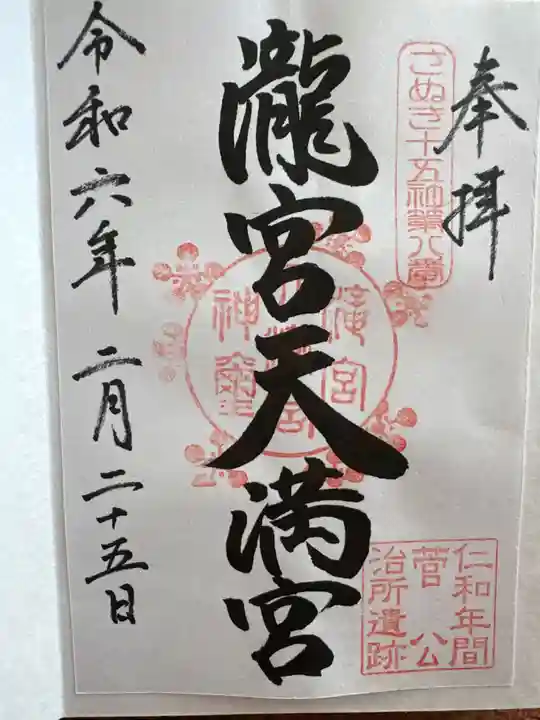 奉拝
さぬき十五社第八番
瀧宮天満宮
滝宮
神璽
仁和年間
菅公
治所遺跡
令和六年 二月二十五日